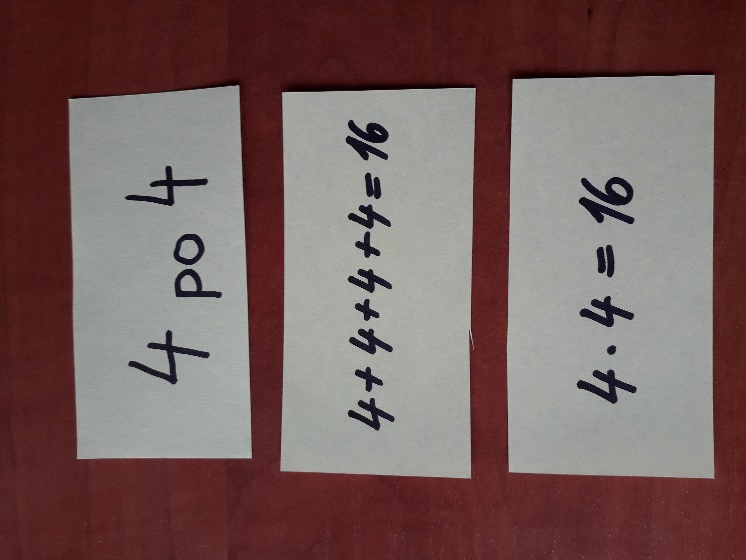 4 po 4
4+4+4+4=16
4·4=16